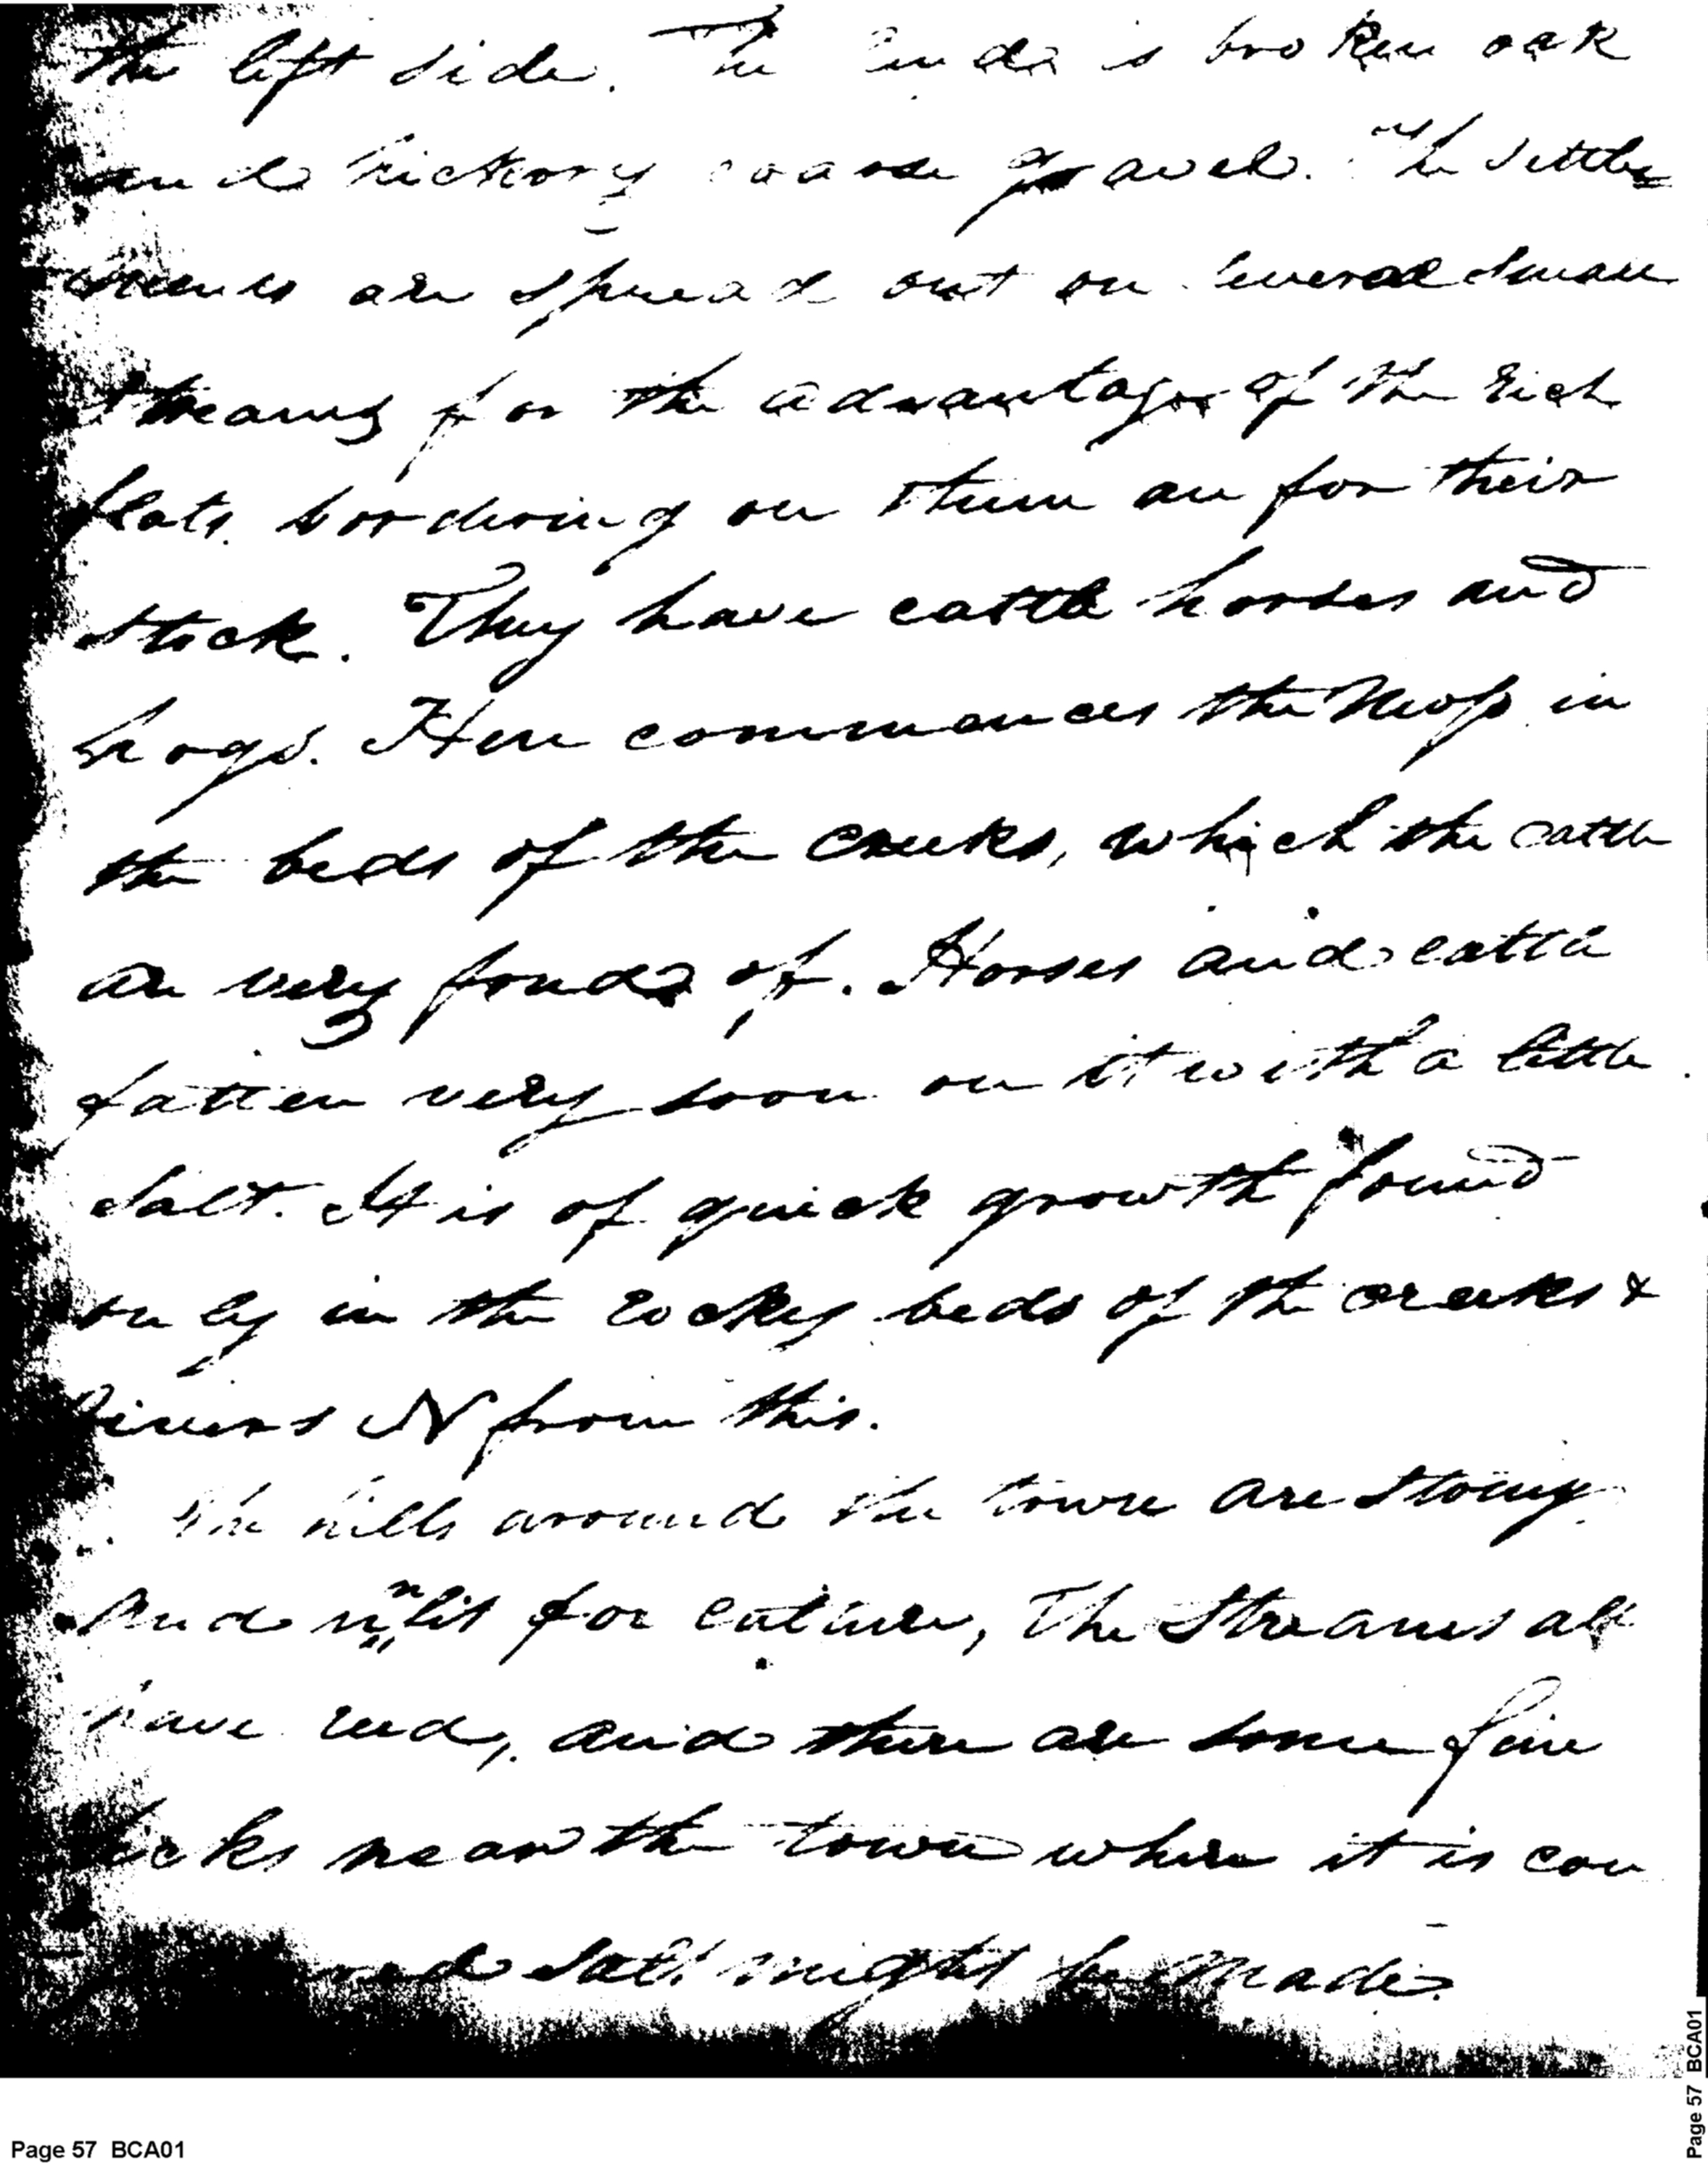 the left side. The lands is broken oak
and hickory coarse gravel. The settle
ments are spread out on several small
streams for the advantage of the rich
flats bordering on them an for their
stock. They have cattle horses and
hogs. Here commences the Moss in
the beds of the creeks, which the cattle
are very fond of. Horses and cattle
fatten very soon on it with a little
salt. It is of quick growth found
only in the rocky beds of the creeks &
rivers N from this.
The hills around the town are stony
and unfit for culture, The Streams all
have reed, and there are some fine
licks near the town where it is con
salt might be made.
Page 57 BCA01
Page 57 BCA01